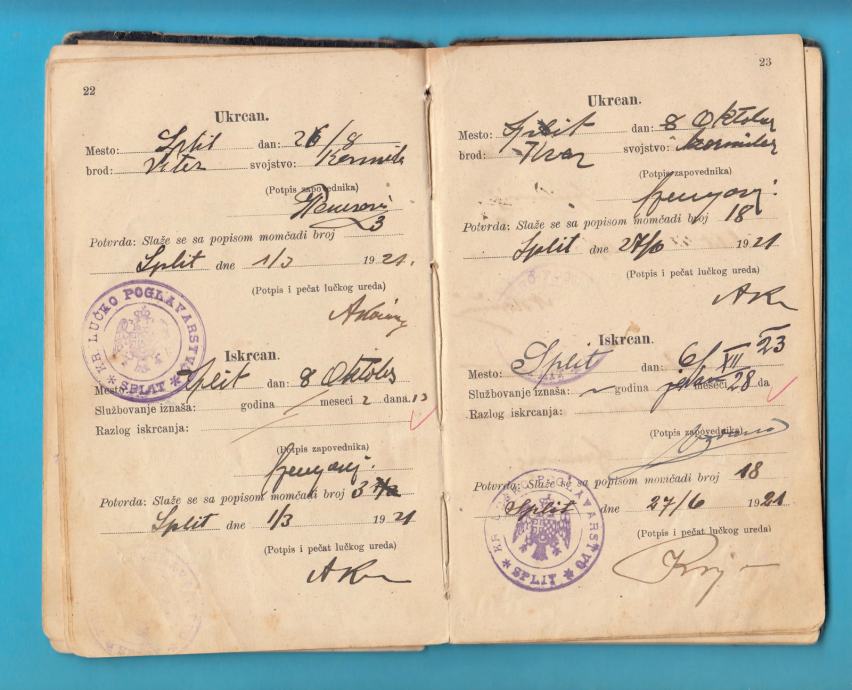 22
Ukrcan.
Mesto: Split dan: 26/8
brod: svojstvo:
(Potpis zapovednika)
3
Potvrda: Slaže se sa popisom momčadi broj
Split dne 1/3 1921.
(Potpis i pečat lučkog ureda)
KR LUČKO POGLAVARSTVO
* SPLIT *
Iskrcan.
Mesto: Split dan: 8 Oktobr
Službovanje iznaša: godina meseci 2 dana 13
Razlog iskrcanja:
(Potpis zapovednika)
Potvrda: Slaže se sa popisom momčadi broj 3
Split dne 1/3 1921
(Potpis i pečat lučkog ureda)
23
Ukrcan.
Mesto: Split dan: 8 Oktobar
brod: Hvar svojstvo: kormilar
(Potpis zapovednika)
Potvrda: Slaže se sa popisom momčadi broj 18
Split dne 27/6 1921
(Potpis i pečat lučkog ureda)
Iskrcan.
Mesto: Split dan: 6/VII 23
Službovanje iznaša: godina meseci 28 da
Razlog iskrcanja:
(Potpis zapovednika)
Potvrda: Slaže se sa popisom momčadi broj 18
Split dne 27/6 1921
(Potpis i pečat lučkog ureda)
KR LUČKO POGLAVARSTVO
* SPLIT *